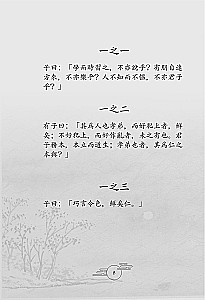 一之一
子曰：「學而時習之，不亦說乎？有朋自遠
方來，不亦樂乎？人不知而不慍，不亦君子
乎？」
一之二
有子曰：「其為人也孝弟，而好犯上者，鮮
矣；不好犯上，而好作亂者，未之有也。君
子務本，本立而道生；孝弟也者，其為仁之
本與？」
一之三
子曰：「巧言令色，鮮矣仁。」